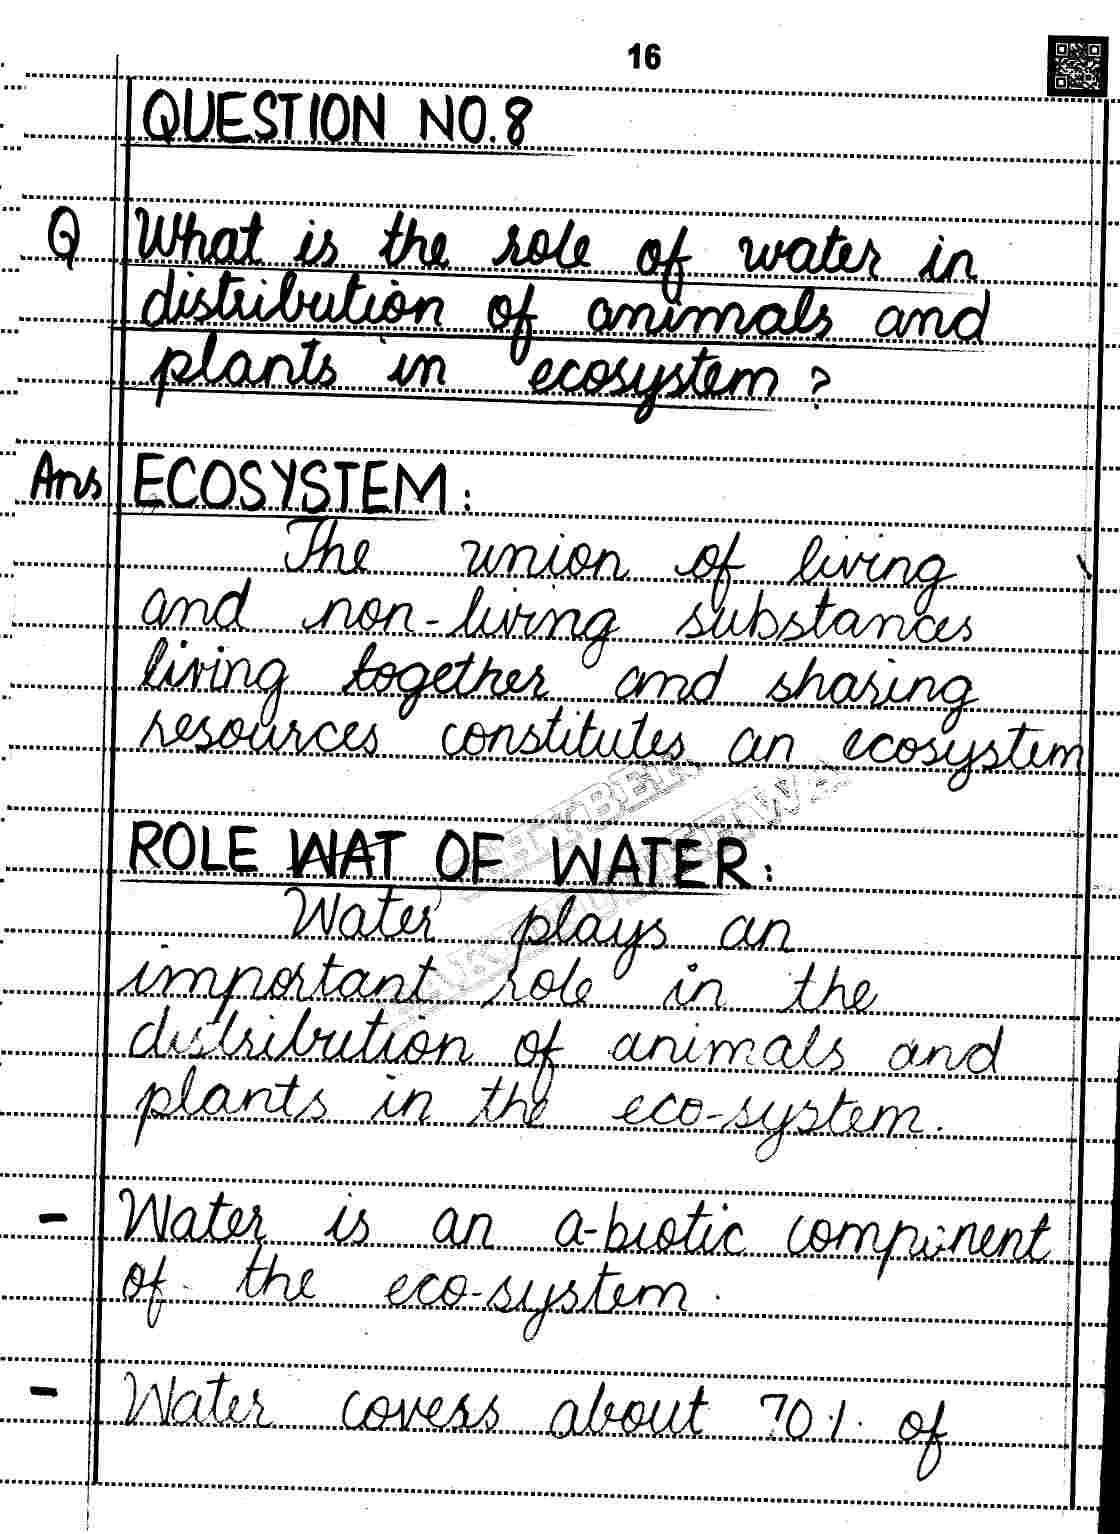 16
QUESTION NO.8
Q What is the role of water in
distribution of animals and
plants in ecosystem?
Ans ECOSYSTEM:
The union of living
and non-living substances
living together and sharing
resources constitutes an ecosystem
KHYBER
PAKHTUNKHWA
ROLE WAT OF WATER:
Water plays an
important role in the
distribution of animals and
plants in the eco-system.
- Water is an a-biotic component
of the eco-system.
- Water covers about 70% of